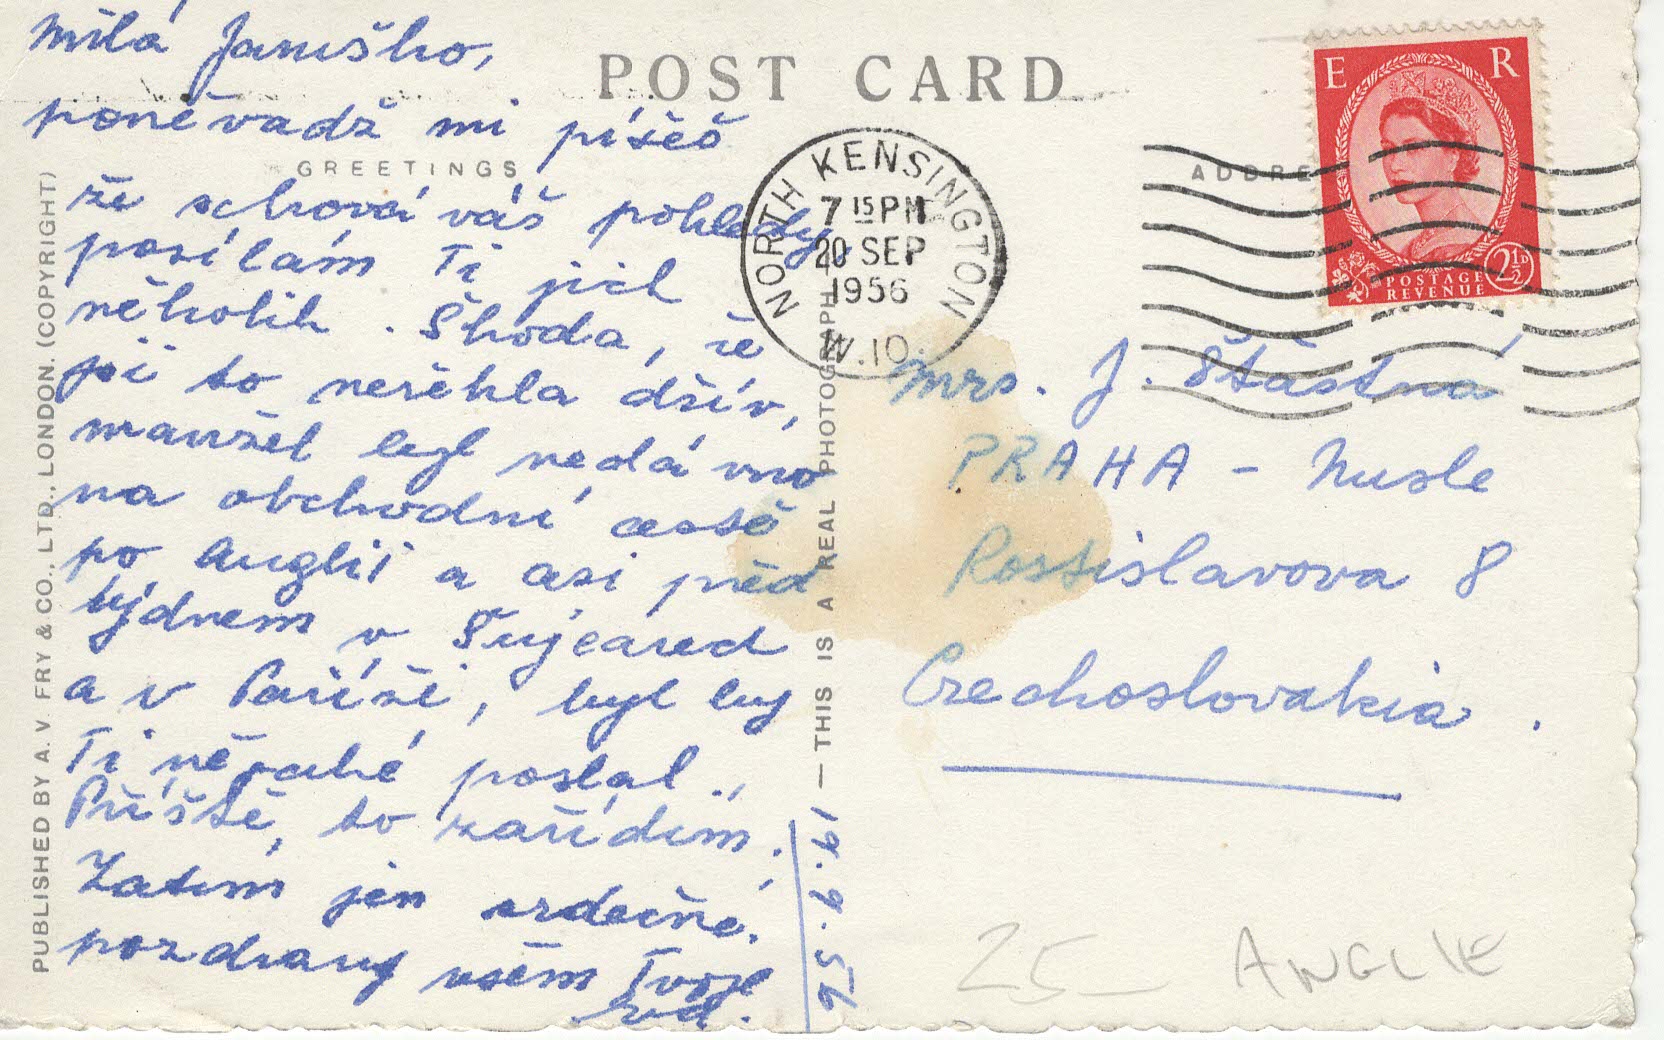 POST CARD
GREETINGS
ADDRE
Milá Jaruško,
poněvadž mi píšeš
že schováváš pohledy,
posílám Ti jich
několik. Škoda, že
jsi to neřekla dřív,
manžel byl nedávno
na obchodní cestě
po Anglii a asi před
týdnem v Švýcarech
a v Paříži, byl by
Ti nějaké poslal.
Příště, to zařídím.
Zatím jen srdečné
pozdravy všem Tvoje
19.9.56
E R
POSTAGE
REVENUE
2½D
NORTH KENSINGTON
7 15 PM
20 SEP
1956
W.10
Mrs. J. Šťastná
PRAHA - Nusle
Rostislavova 8
Czechoslovakia.
25 ANGLIE
PUBLISHED BY A. V. FRY & CO., LTD., LONDON. (COPYRIGHT)
— THIS IS A REAL PHOTOGRAPH